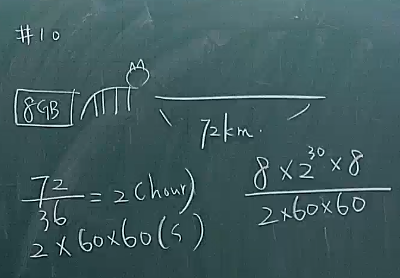 #10
8GB
72km.
72/36 = 2(hour)
2×60×60(s)
8×2^30×8
2×60×60